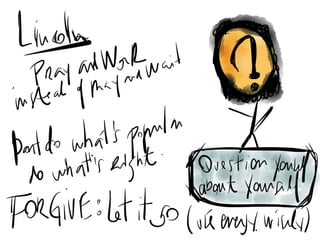 Lincoln
Pray and Work
instead of pray and wait
Dont do what's popular
do what's Right.
FORGIVE: Let it go
?
Question yourself
about yourself